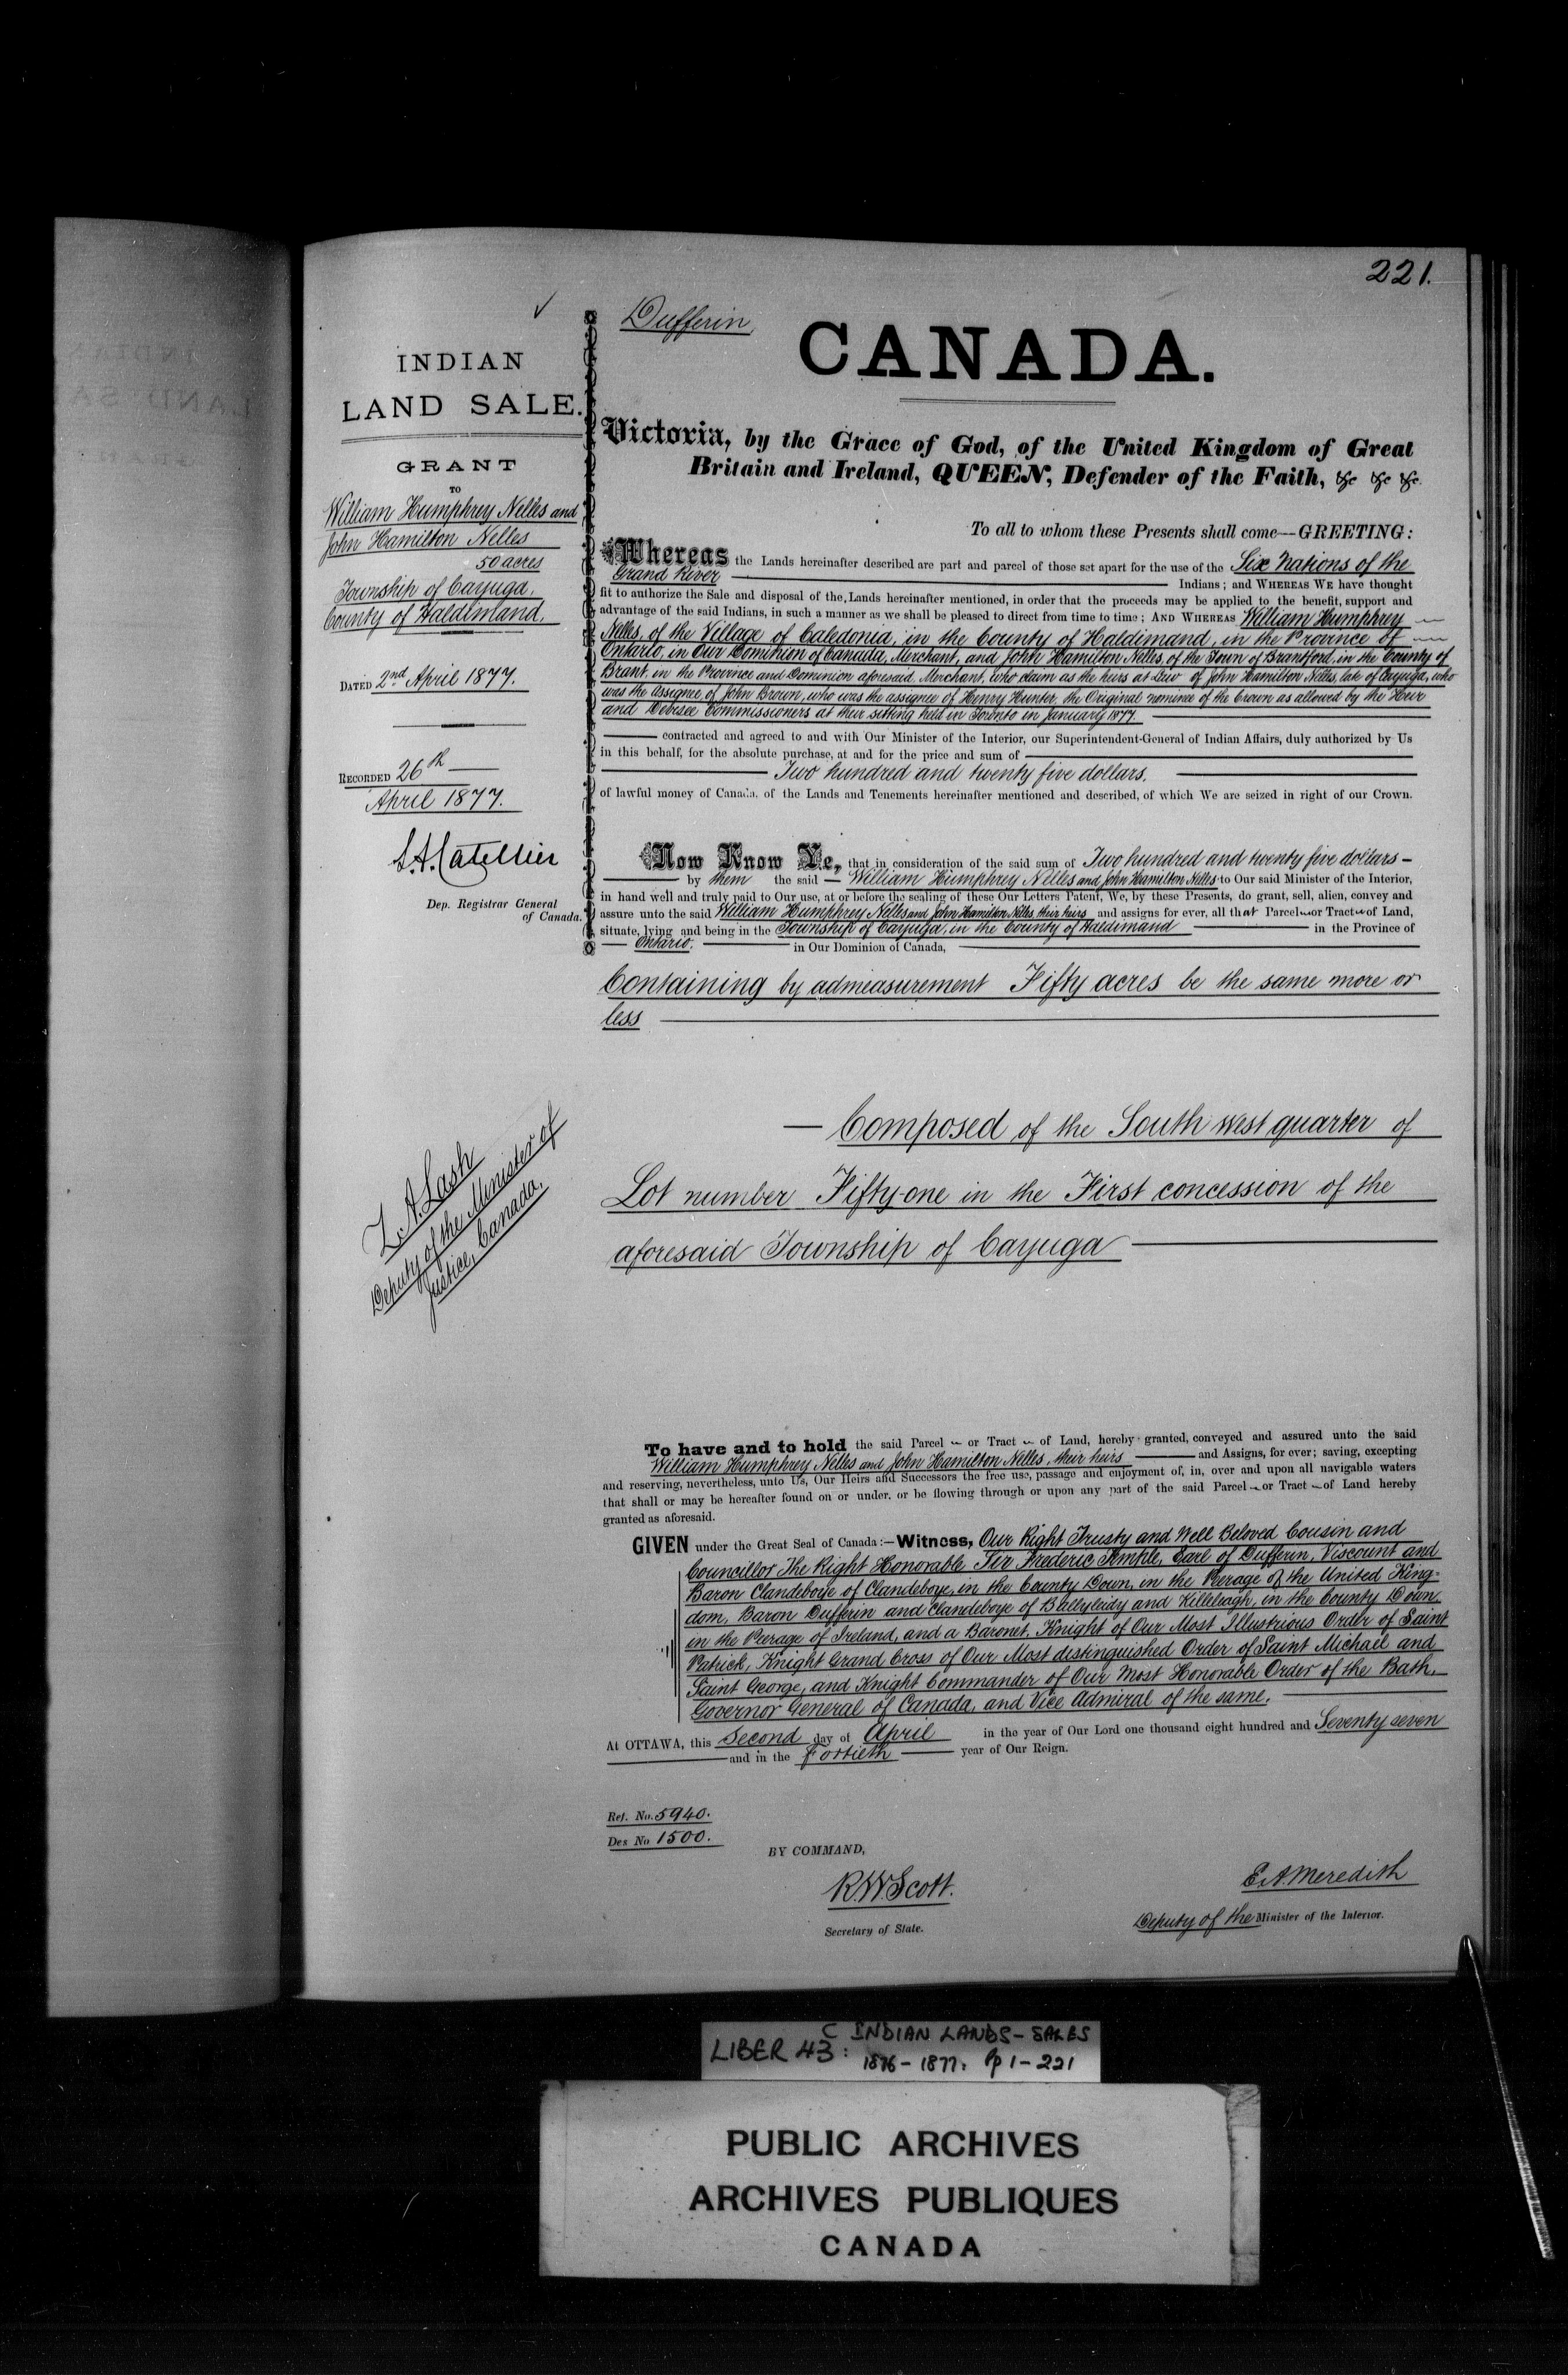 221.
INDIAN
LAND SALE.
GRANT
TO
William Humphrey Nelles and
John Hamilton Nelles
50 acres
Township of Cayuga,
County of Haldimand.
DATED 2nd April 1877.
RECORDED 26th
April 1877.
L.A. Catellier
Dep. Registrar General
of Canada.
Z. A. Lash
Deputy of the Minister of
Justice, Canada.
Dufferin
CANADA.
Victoria, by the Grace of God, of the United Kingdom of Great
Britain and Ireland, QUEEN, Defender of the Faith, &c &c &c.
To all to whom these Presents shall come—GREETING:
Whereas the Lands hereinafter described are part and parcel of those set apart for the use of the Six Nations of the
Grand River Indians; and WHEREAS WE have thought
fit to authorize the Sale and disposal of the Lands hereinafter mentioned, in order that the proceeds may be applied to the benefit, support and
advantage of the said Indians, in such a manner as we shall be pleased to direct from time to time; AND WHEREAS William Humphrey
Nelles, of the Village of Caledonia, in the County of Haldimand, in the Province of
Ontario, in Our Dominion of Canada, Merchant, and John Hamilton Nelles, of the Town of Brantford, in the County of
Brant, in the Province and Dominion aforesaid, Merchant, who claim as the heirs at Law of John Hamilton Nelles, late of Cayuga, who
was the Assignee of John Brown, who was the assignee of Henry Hunter, the Original nominee of the Crown as allowed by the Heir
and Devisee Commissioners at their sitting held in Toronto in January 1877.
contracted and agreed to and with Our Minister of the Interior, our Superintendent-General of Indian Affairs, duly authorized by Us
in this behalf, for the absolute purchase, at and for the price and sum of
Two hundred and twenty five dollars.
of lawful money of Canada, of the Lands and Tenements hereinafter mentioned and described, of which We are seized in right of our Crown.
Now Know Ye, that in consideration of the said sum of Two hundred and twenty five dollars –
by them the said – William Humphrey Nelles and John Hamilton Nelles to Our said Minister of the Interior,
in hand well and truly paid to Our use, at or before the sealing of these Our Letters Patent, We, by these Presents, do grant, sell, alien, convey and
assure unto the said William Humphrey Nelles and John Hamilton Nelles, their heirs and assigns for ever, all that Parcel or Tract of Land,
situate, lying and being in the Township of Cayuga, in the County of Haldimand in the Province of
Ontario. in Our Dominion of Canada,
Containing by admeasurement Fifty acres be the same more or
less
— Composed of the South west quarter of
Lot number Fifty-one in the First concession of the
aforesaid Township of Cayuga
To have and to hold the said Parcel or Tract of Land, hereby granted, conveyed and assured unto the said
William Humphrey Nelles and John Hamilton Nelles, their heirs and Assigns, for ever; saving, excepting
and reserving, nevertheless, unto Us, Our Heirs and Successors the free use, passage and enjoyment of, in, over and upon all navigable waters
that shall or may be hereafter found on or under, or be flowing through or upon any part of the said Parcel or Tract of Land hereby
granted as aforesaid.
GIVEN under the Great Seal of Canada:—Witness, Our Right Trusty and Well Beloved Cousin and
Councillor The Right Honorable Sir Frederic Temple, Earl of Dufferin, Viscount and
Baron Clandeboye of Clandeboye, in the County Down, in the Peerage of the United King-
dom, Baron Dufferin and Clandeboye of Ballyleidy and Killeleagh, in the County Down,
in the Peerage of Ireland, and a Baronet, Knight of Our Most Illustrious Order of Saint
Patrick, Knight Grand Cross of Our Most distinguished Order of Saint Michael and
Saint George, and Knight Commander of Our Most Honorable Order of the Bath,
Governor General of Canada, and Vice Admiral of the same.
At OTTAWA, this Second day of April in the year of Our Lord one thousand eight hundred and Seventy seven
and in the Fortieth year of Our Reign.
Ref. No. 5940.
Des No 1500.
BY COMMAND,
R.W. Scott.
Secretary of State.
E.A. Meredith
Deputy of the Minister of the Interior.
LIBER 43: C INDIAN LANDS-SALES
1876-1877. Pp 1-221
PUBLIC ARCHIVES
ARCHIVES PUBLIQUES
CANADA